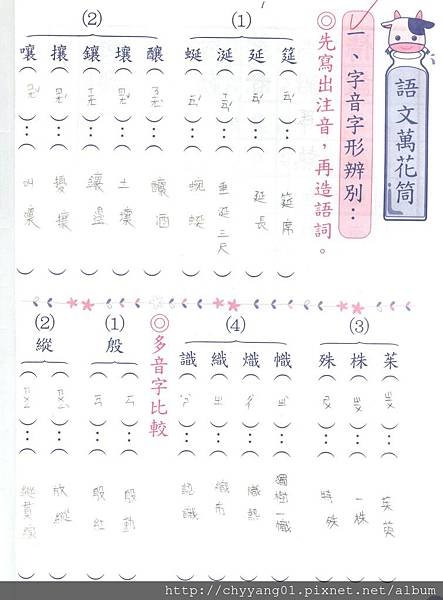 語文萬花筒
一、字音字形辨別：
◎先寫出注音，再造語詞。
(1)
筵（ㄧㄢˊ）：（筵席）
延（ㄧㄢˊ）：（延長）
涎（）：（垂涎三尺）
蜒（ㄧㄢˊ）：（蜿蜒）
(2)
釀（）：（釀酒）
壤（）：（土壤）
鑲（）：（鑲邊）
攘（）：（擾攘）
嚷（）：（叫嚷）
(3)
茱（ㄓㄨ）：（茱萸）
株（ㄓㄨ）：（一株）
殊（ㄕㄨ）：（特殊）
(4)
幟（ㄓˋ）：（獨樹一幟）
熾（ㄔˋ）：（熾熱）
織（ㄓ）：（織布）
識（）：（認識）
◎多音字比較
(1)
殷（）：（殷勤）
（ㄧㄢ）：（殷紅）
(2)
縱（ㄗㄨㄥˋ）：（放縱）
（ㄗㄨㄥ）：（縱貫線）
http://chyyang01.pixnet.net/album